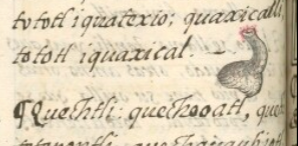 tototl iquatexio; quaxicalli,
tototl iquaxical.
¶Quechtli: quechooatl, que